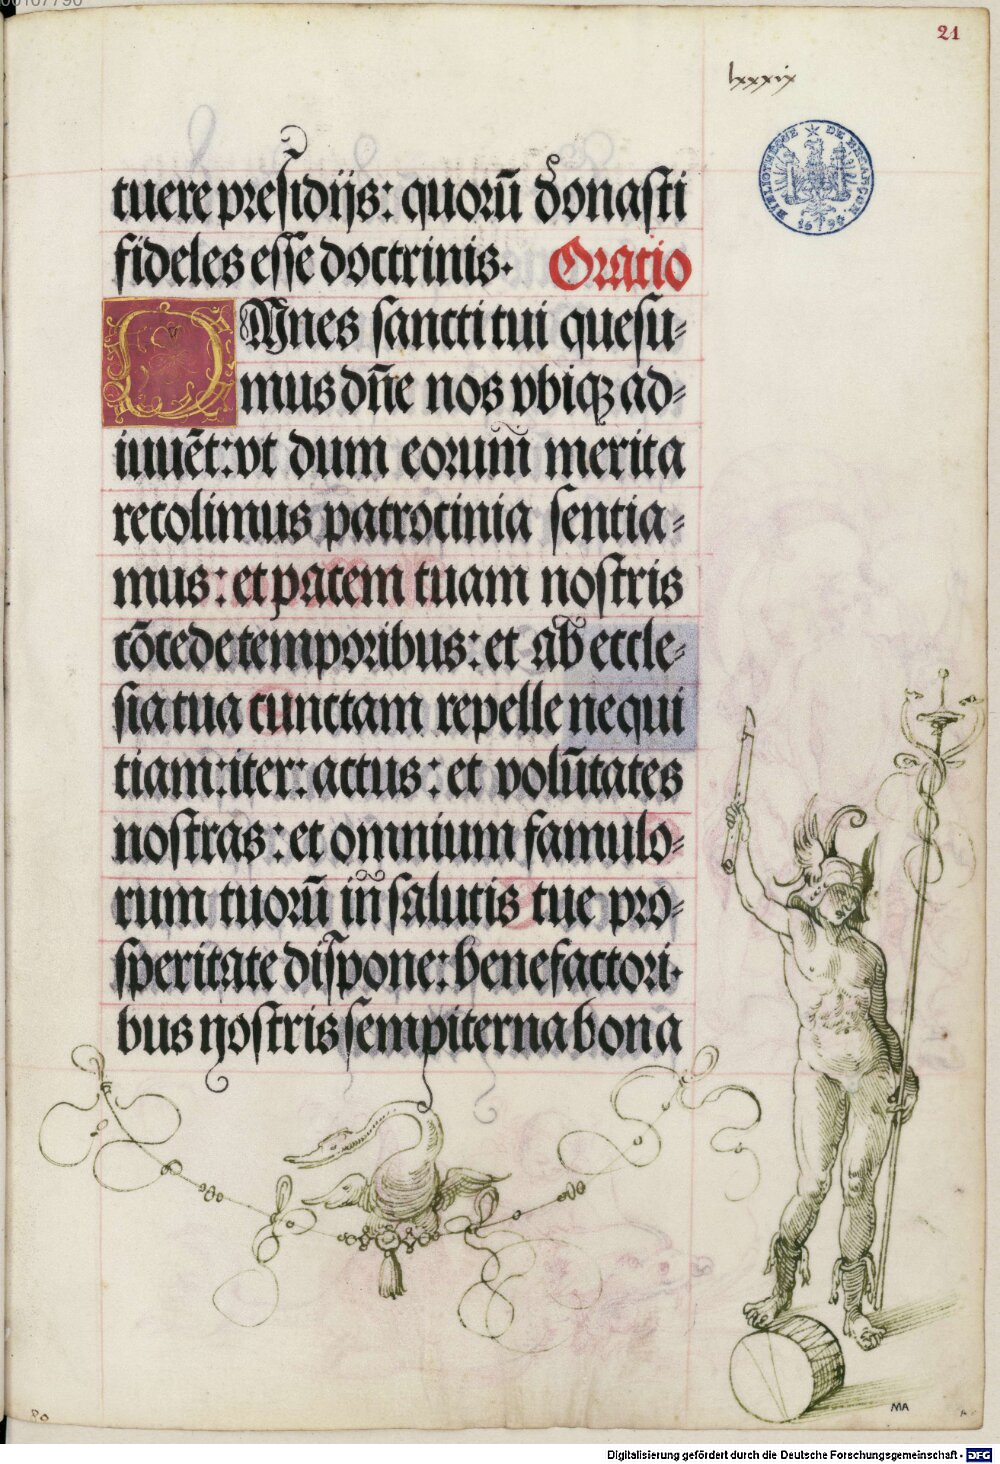 21
lxxxix
BIBLIOTHEQUE DE BESANÇON
1694
tuere presidijs: quorū donasti
fideles esse doctrinis. Oratio
OMnes sancti tui quesu=
mus dn̄e nos vbiqꝫ ad=
iuuēt: vt dum eorum̄ merita
recolimus patrocinia sentia=
mus: et pacem tuam nostris
cōcede temporibus: et ab eccle=
sia tua cunctam repelle nequi
tiam: iter: actus: et volūtates
nostras: et omnium famulo=
rum tuorū in̄ salutis tue pro=
speritate dispone: benefactori.
bus nostris sempiterna bona
MA
Digitalisierung gefördert durch die Deutsche Forschungsgemeinschaft - DFG